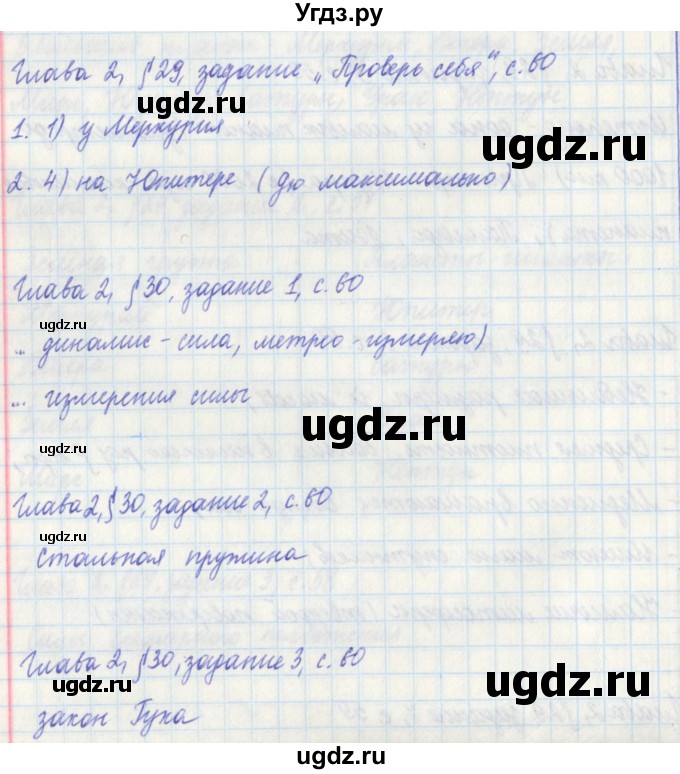 Угдз.ру
Глава 2, § 29, задание „Проверь себя", с. 60
1. 1) у Меркурия
ugdz.ru
2. 4) на Юпитере (дю максимально)
Глава 2, § 30, задание 1, с. 60
ugdz.ru
... динамис - сила, метрео - измеряю)
ugdz.ru
... измерения силы
ugdz.ru
Глава 2, § 30, задание 2, с. 60
ugdz.ru
стальная пружина
Глава 2, § 30, задание 3, с. 60
ugdz.ru
ugdz.ru
закон Гука
ugdz.ru